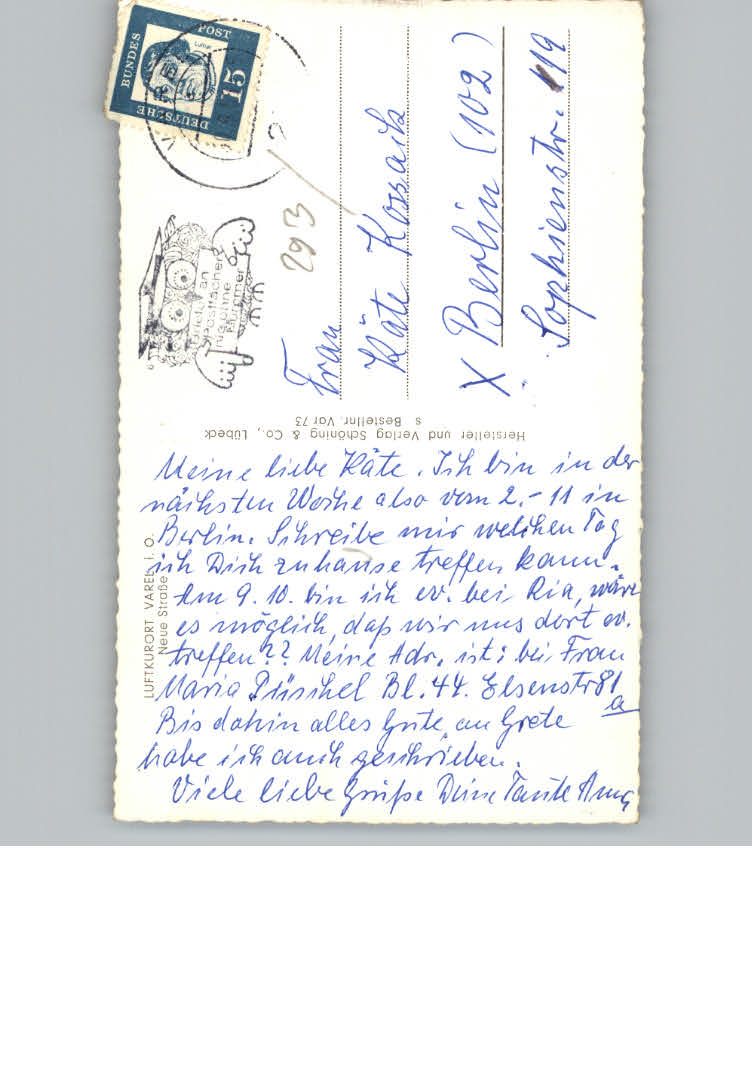 DEUTSCHE
BUNDES
POST
15
Luther
Briefe an
Postfächer
nie ohne
Nummer
293
Frau
Käte Kossack
X Berlin (102)
Sophienstr. 19
Hersteller und Verlag Schöning & Co., Lübeck
s Bestellnr. Var 73
LUFTKURORT VAREL i. O.
Neue Straße
Meine liebe Käte. Ich bin in der
nächsten Woche also vom 2.-11 in
Berlin. Schreibe mir welchen Tag
ich Dich zuhause treffen kann.
Am 9. 10. bin ich ev. bei Ria, wäre
es möglich, daß wir uns dort ev.
treffen?? Meine Adr. ist: bei Frau
Maria Püschel Bl. 44. Elsenstr 81
a
Bis dahin alles Gute, an Grete
habe ich auch geschrieben.
Viele liebe Grüße Deine Tante Anna